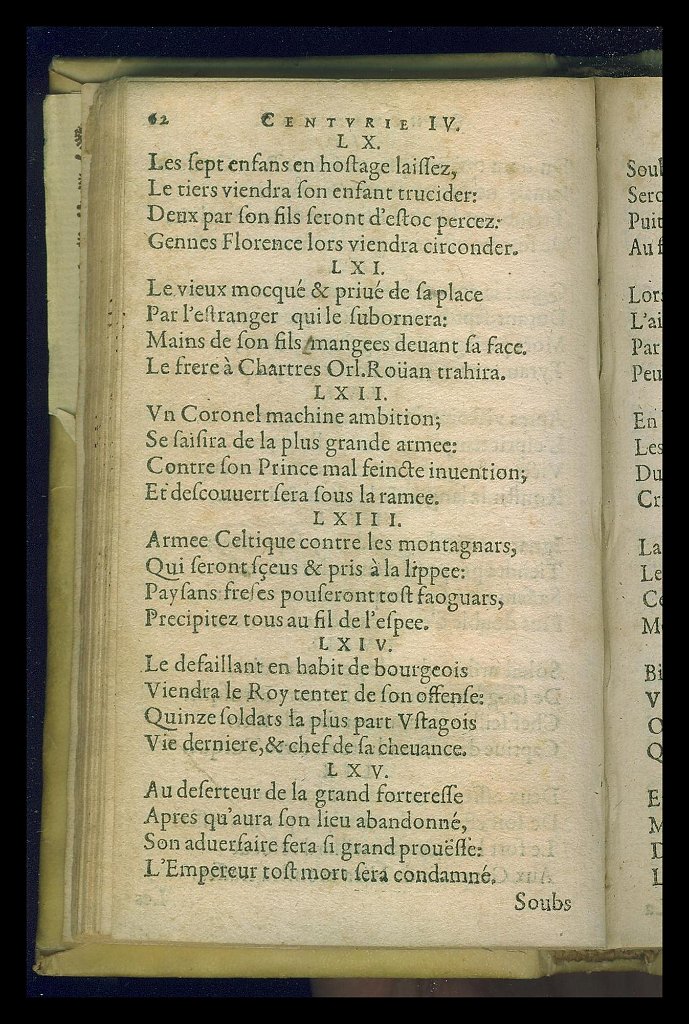 62 CENTVRIE IV.
LX.
Les ſept enfans en hoſtage laiſſez,
Le tiers viendra ſon enfant trucider:
Deux par ſon fils ſeront d'eſtoc percez:
Gennes Florence lors viendra circonder.
LXI.
Le vieux mocqué & priué de ſa place
Par l'eſtranger qui le ſubornera:
Mains de ſon fils mangees deuant ſa face.
Le frere à Chartres Orl. Roüan trahira.
LXII.
Vn Coronel machine ambition;
Se ſaiſira de la plus grande armee:
Contre ſon Prince mal feincte inuention;
Et deſcouuert ſera ſous la ramee.
LXIII.
Armee Celtique contre les montagnars,
Qui ſeront ſçeus & pris à la lippee:
Payſans freſes pouſeront toſt faoguars,
Precipitez tous au fil de l'eſpee.
LXIV.
Le defaillant en habit de bourgeois
Viendra le Roy tenter de ſon offenſe:
Quinze ſoldats la plus part Vſtagois
Vie derniere, & chef de ſa cheuance.
LXV.
Au deſerteur de la grand fortereſſe
Apres qu'aura ſon lieu abandonné,
Son aduerſaire fera ſi grand proüeſſe:
L'Empereur toſt mort ſera condamné.
Soubs
Lors
L'ai
Par
Peu
En
Les
Du
La
Le